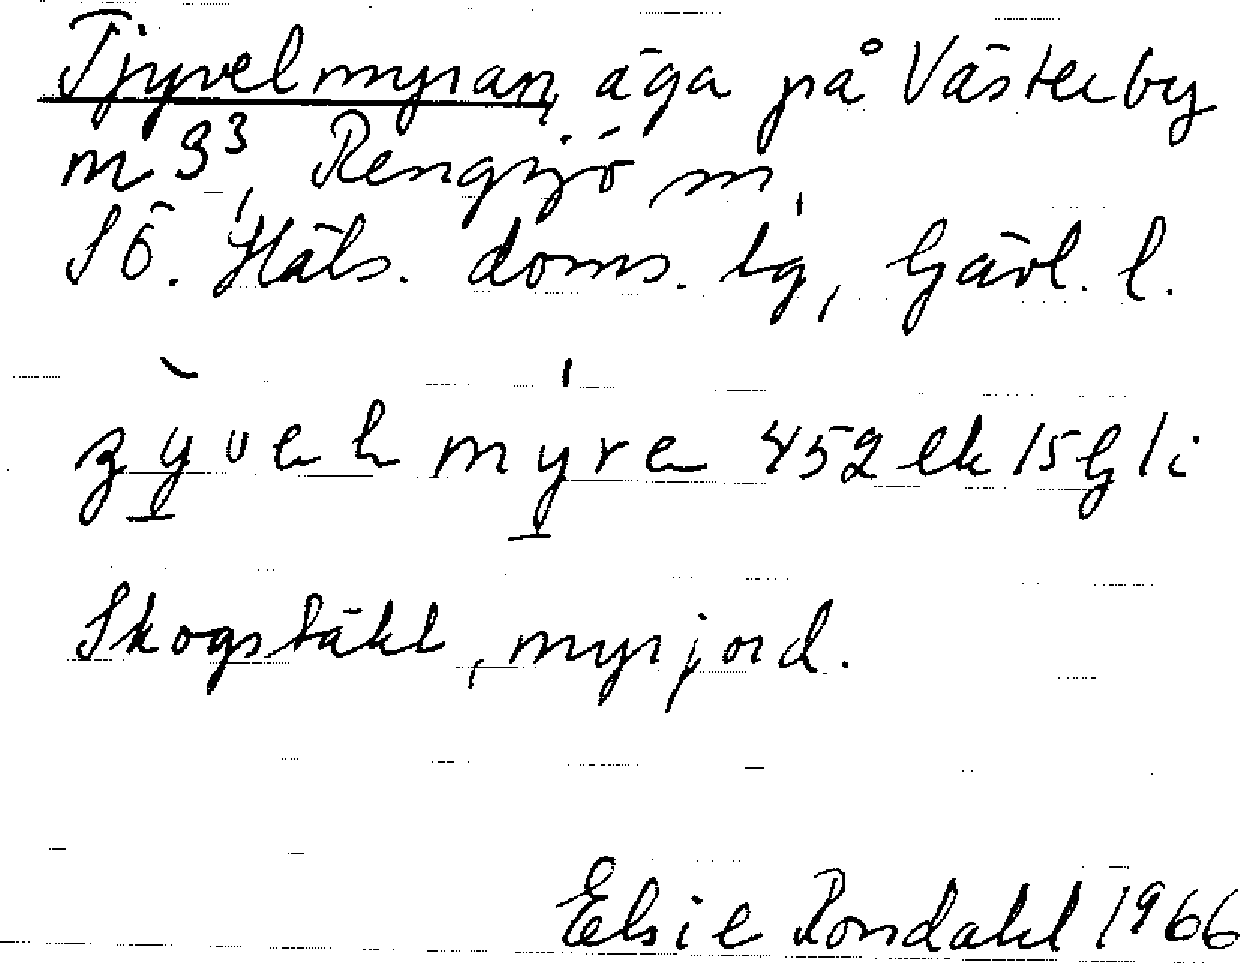 Tjyvelmyran, äga på Västerby
m 3³, Rengsjö sn,
SÖ. Häls. doms. lg, Gävl. l.
myre 452 ek 15 G 1 i
Skogstäkt, myrjord.
Elsie Rondahl 1966